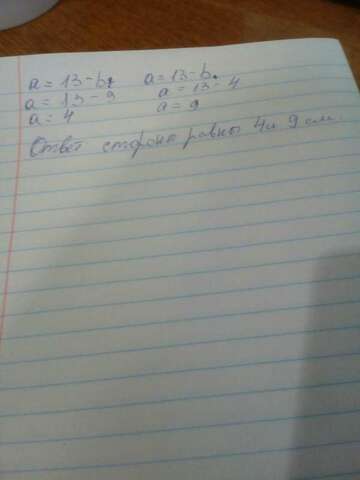 a = 13 - b₁ a = 13 - b₂
a = 13 - 9 a = 13 - 4
a = 4 a = 9
Ответ стороны равны 4 и 9 см.